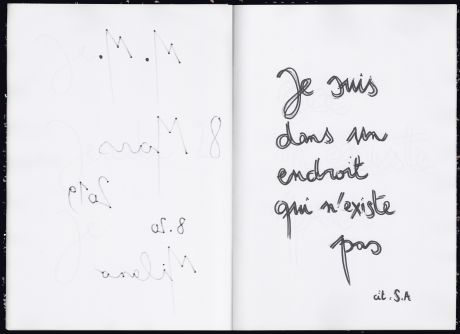 M. M.
8 Mars
2019
8.20
Milano
Je suis
dans un
endroit
qui n'existe
pas
cit. S.A